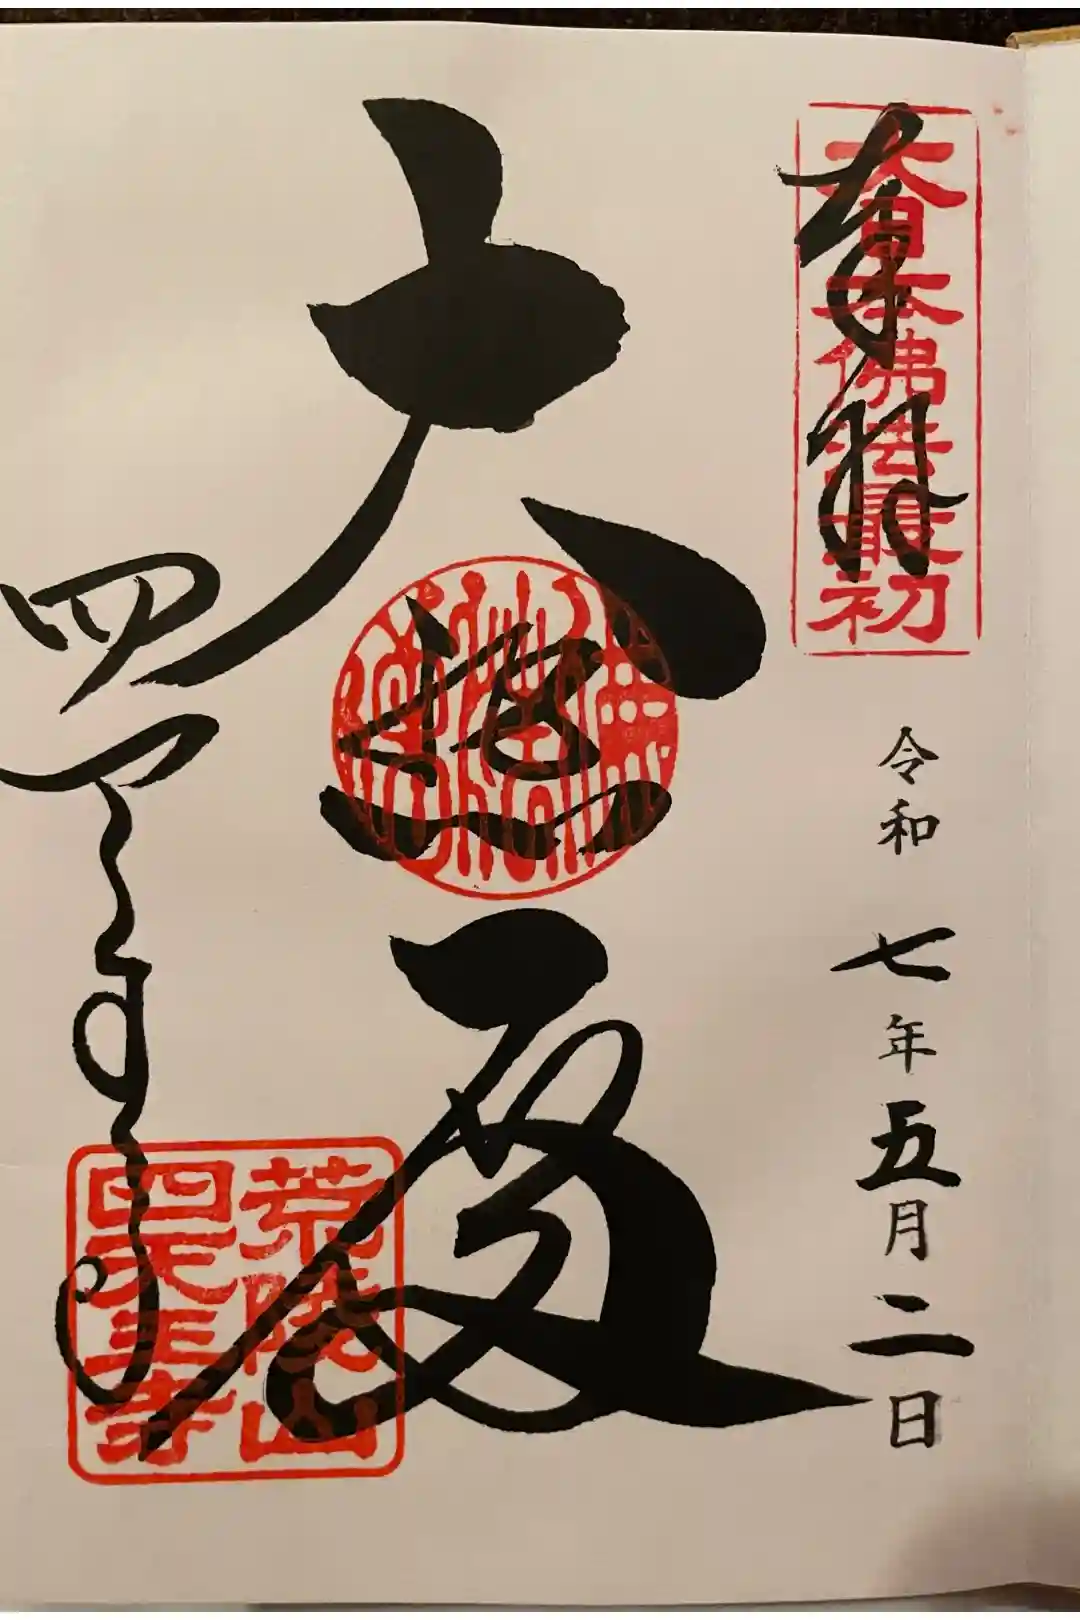 奉拝
大日本佛法最初
令和七年五月二日
大悲殿
四天王寺
荒陵山
四天王寺